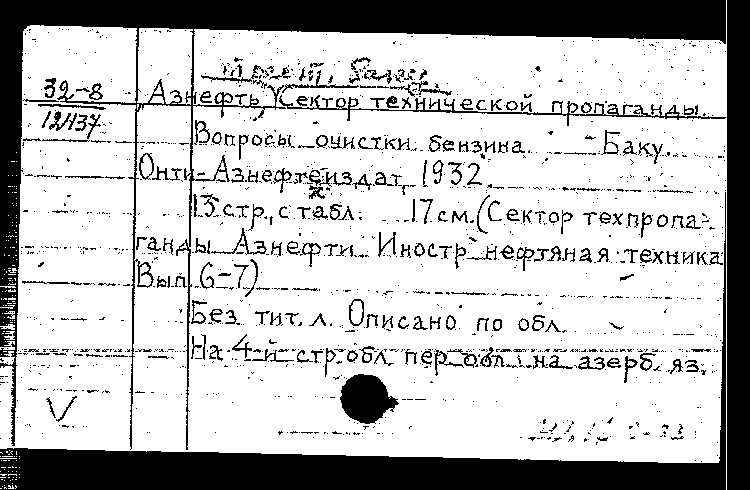 трест, Баку.
32-8
12437
„Азнефть“, Сектор технической пропаганды.
Вопросы очистки бензина. - Баку.
Онти-Азнефтеиздат, 1932.
13 стр., с табл. 17 см. (Сектор техпропа-
ганды Азнефти. Иностр. нефтяная техника
Вып. 6-7)
Без тит. л. Описано по обл.
На 4-й стр. обл. пер. обл. на азерб. яз.
V